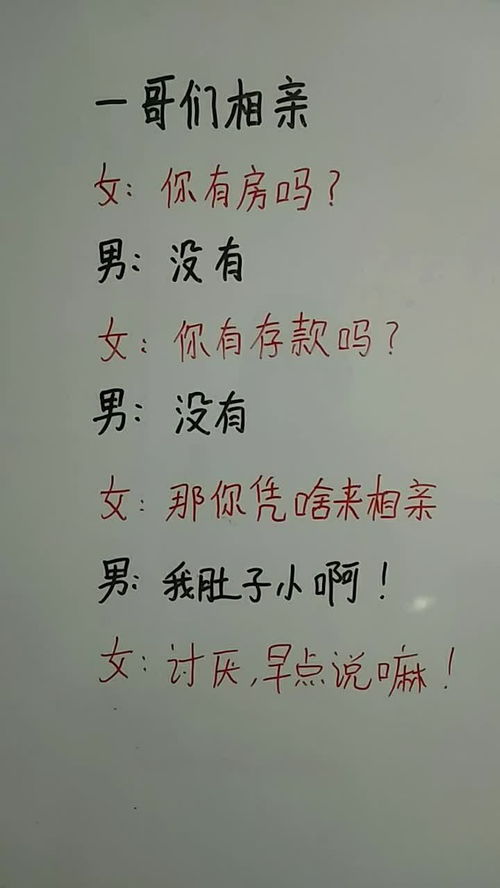 一哥们相亲
女：你有房吗？
男：没有
女：你有存款吗？
男：没有
女：那你凭啥来相亲
男：我肚子小啊！
女：讨厌，早点说嘛！